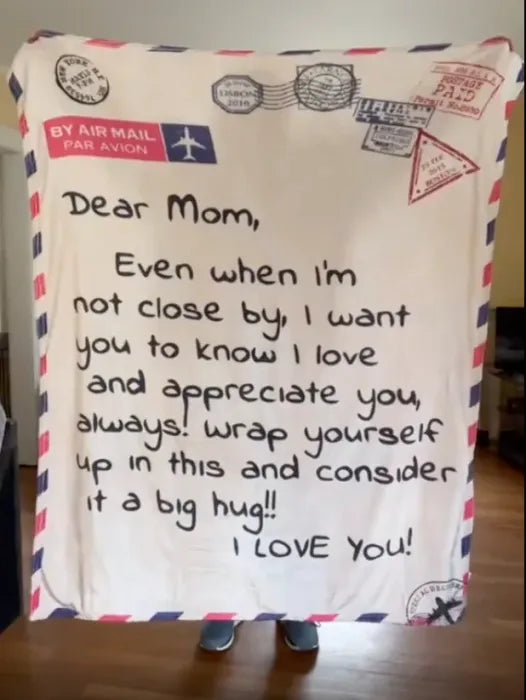 LISBON
2016
POSTAGE
PAID
BY AIR MAIL
PAR AVION
BOSTON
Dear Mom,
Even when I'm
not close by, I want
you to know I love
and appreciate you,
always! wrap yourself
up in this and consider
it a big hug!!
I LOVE YOU!